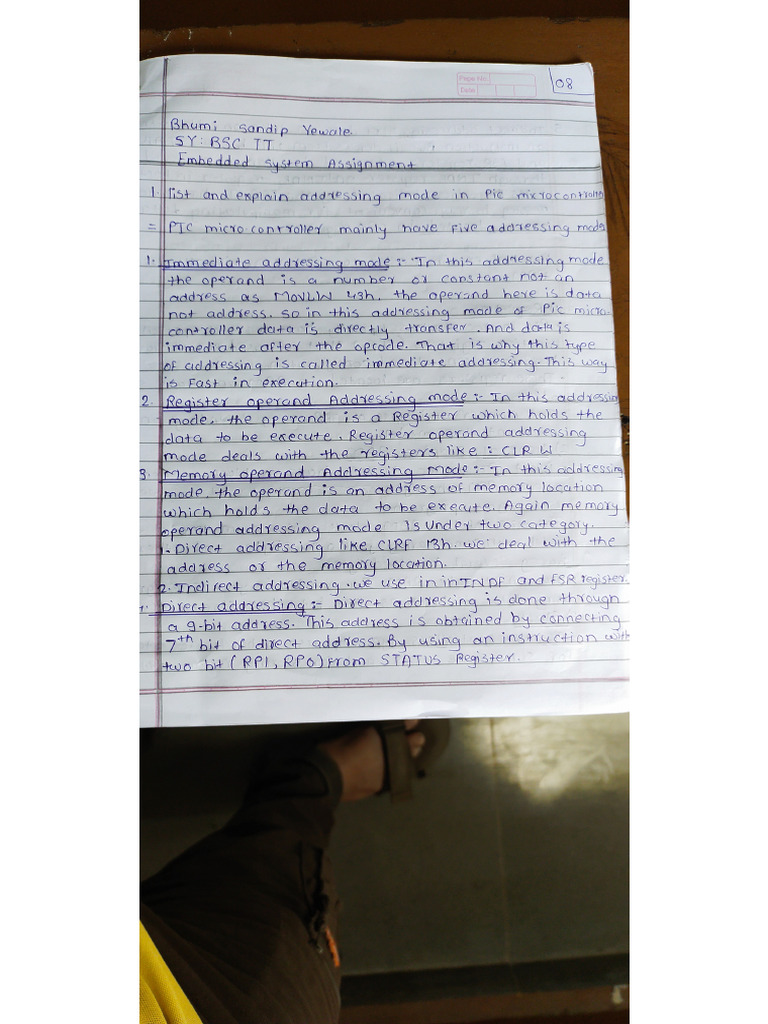 Page No.
Date
08
Bhumi Sandip Yewale.
SY: BSC IT
Embedded System Assignment
1. list and explain addressing mode in Pic microcontroller
= PIC micro controller mainly have five addressing mode
1. Immediate addressing mode :- In this addressing mode
the operand is a number or constant not an
address as MOVLW 43h. the operand here is data
not address. so in this addressing mode of Pic micro-
controller data is directly transfer. And data is
immediate after the opcode. That is why this type
of addressing is called immediate addressing. This way
is fast in execution.
2. Register operand Addressing mode :- In this addressing
mode, the operand is a Register which holds the
data to be execute. Register operand addressing
mode deals with the registers like : CLR W
3. Memory operand Addressing Mode :- In this addressing
mode, the operand is an address of memory location
which holds the data to be execute. Again memory
operand addressing mode is under two category.
1- Direct addressing like CLRF 13h. we deal with the
address or the memory location.
2. Indirect addressing. we use in in INDF and FSR register
Direct addressing :- Direct addressing is done through
a 9-bit address. This address is obtained by connecting
7th bit of direct address. By using an instruction with
two bit (RP1, RP0) from STATUS Register.